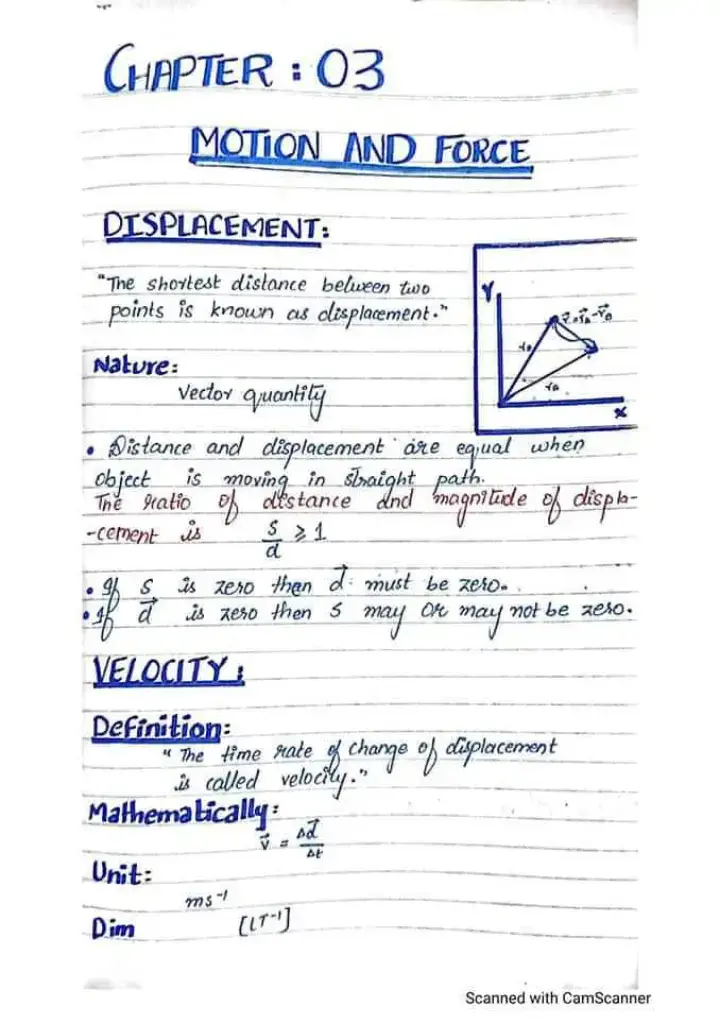 CHAPTER : 03
MOTION AND FORCE
DISPLACEMENT:
"The shortest distance between two
points is known as displacement."
Y
X
Nature:
Vector quantity
• Distance and displacement are equal when
object is moving in straight path.
The ratio of distance and magnitude of displa-
-cement is S/d ⩾ 1
• If S is zero then d⃗ must be zero.
• If d⃗ is zero then S may or may not be zero.
VELOCITY:
Definition:
"The time rate of change of displacement
is called velocity."
Mathematically:
v⃗ = Δd⃗/Δt
Unit:
ms⁻¹
Dim [LT⁻¹]
Scanned with CamScanner